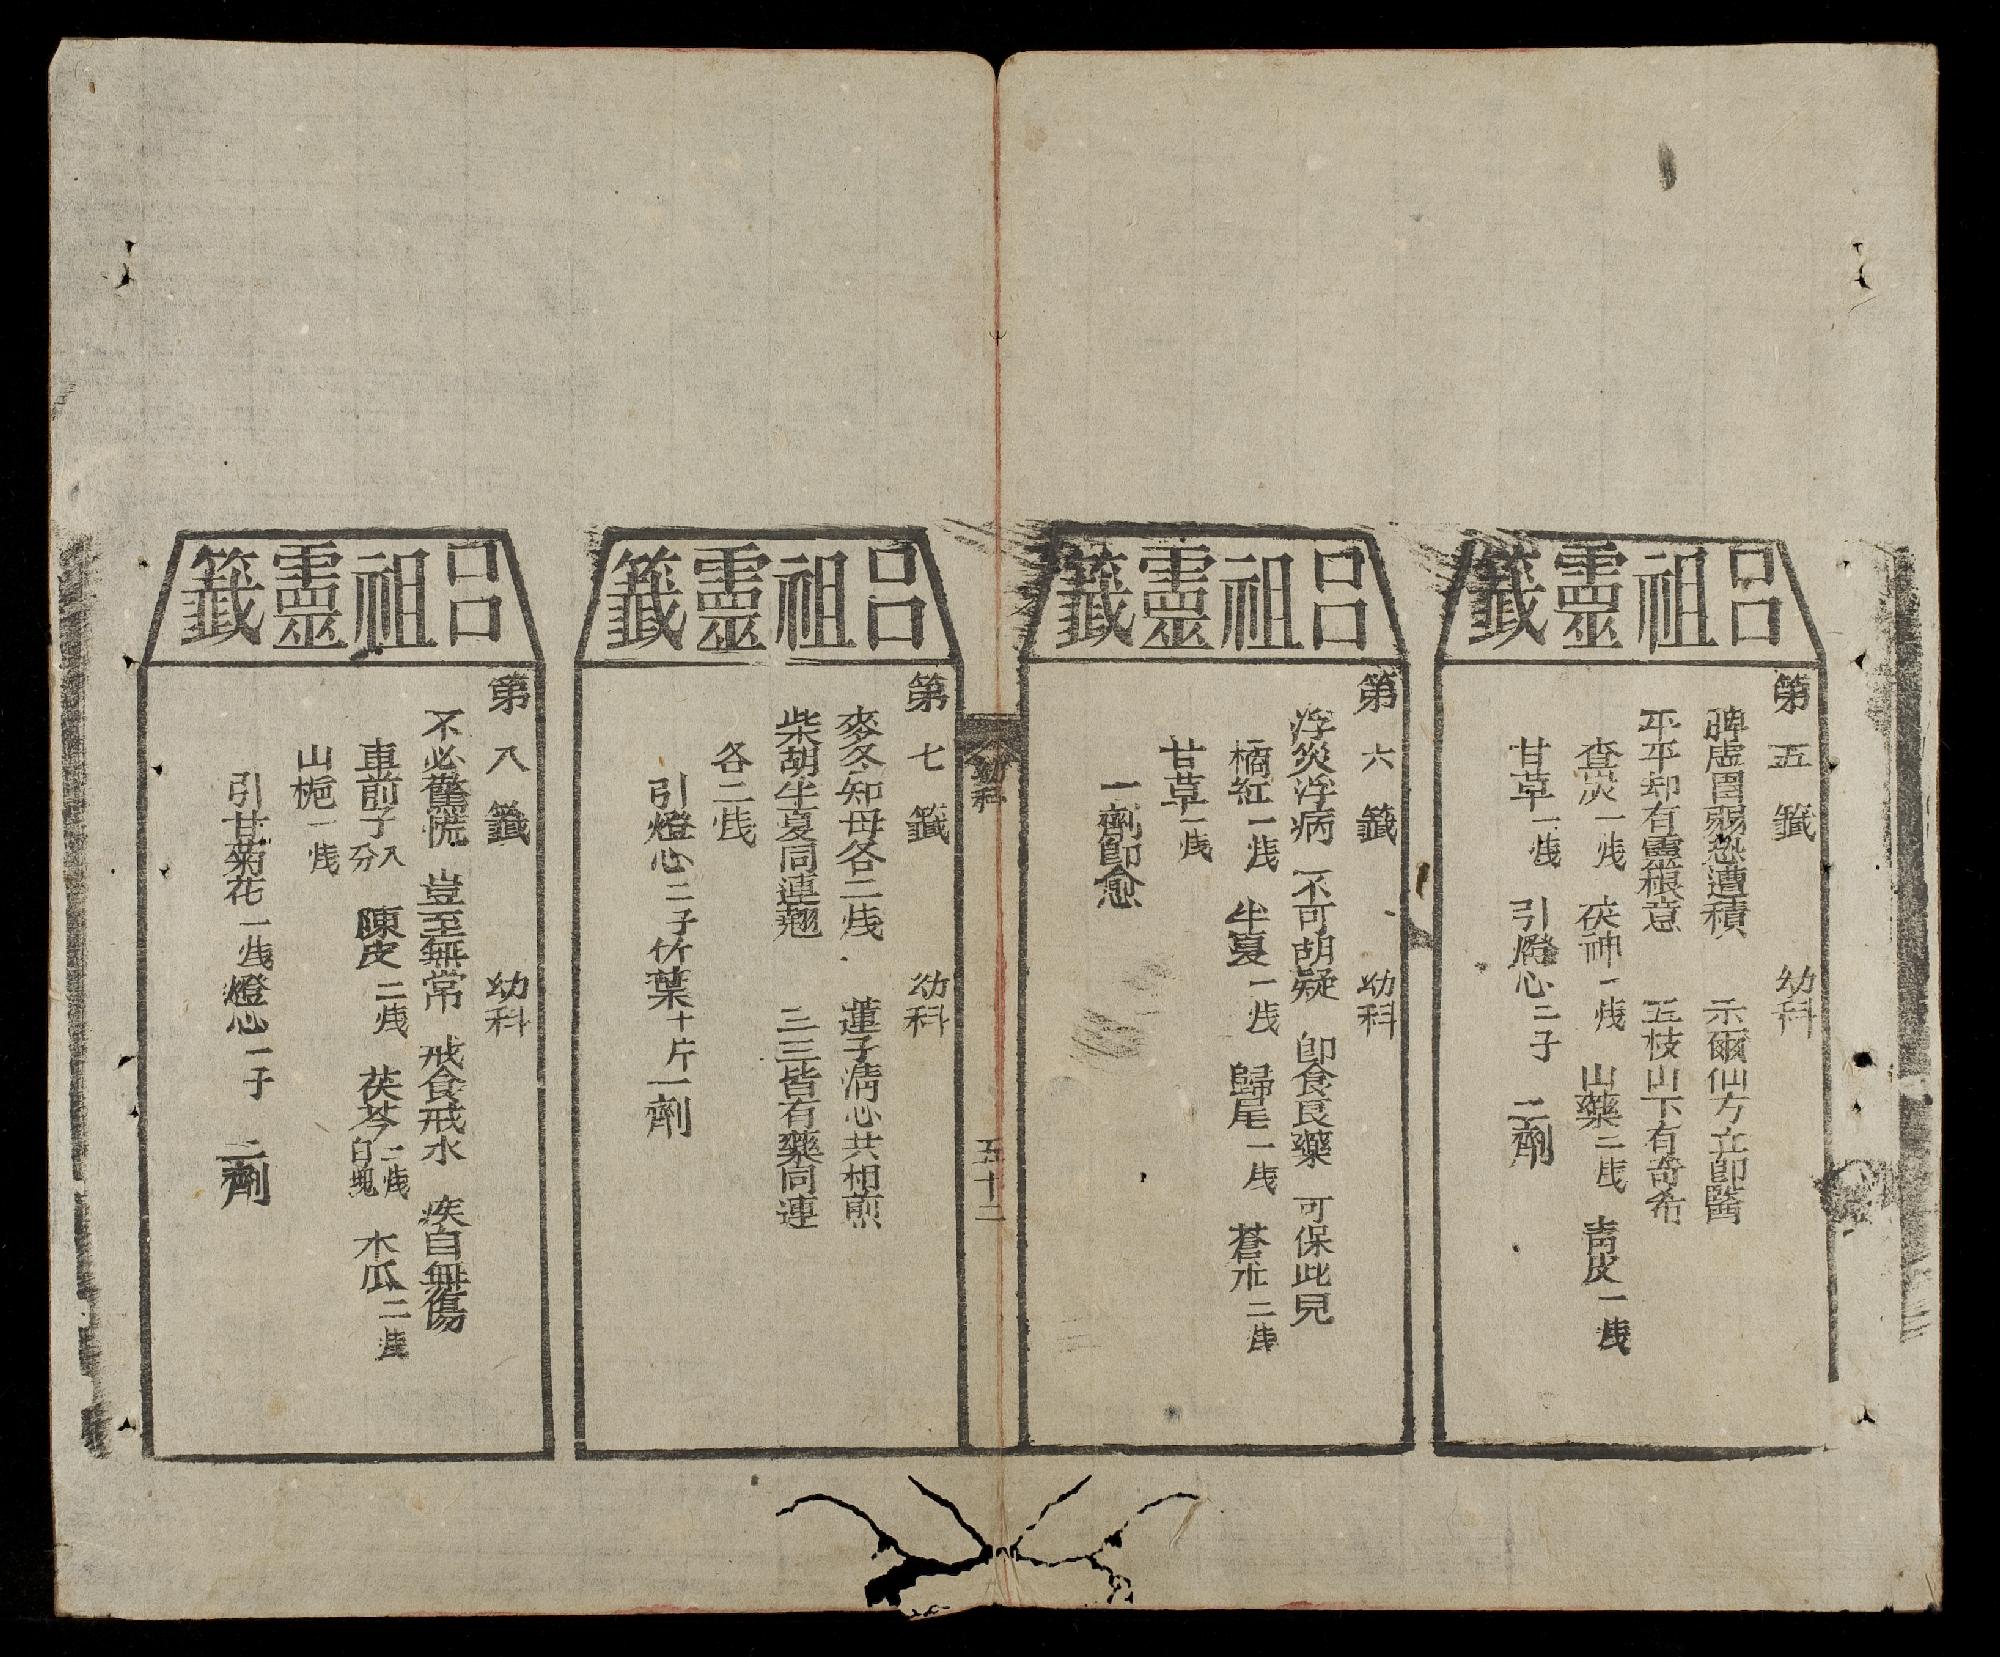 呂祖靈籤
第五籤 幼科
脾虛胃弱恐遭積 示爾仙方立卽醫
平平却有靈根意 五枝山下有奇希
查炭一戋 茯神一戋 山藥二戋 青皮一戋
甘草一戋 引燈心二子 二劑
呂祖靈籤
第六籤 幼科
浮炎浮病 不可胡疑 卽食良藥 可保此兒
橘紅一戋 半夏一戋 歸尾一戋 蒼朮二戋
甘草一戋
一劑卽愈
幼科
五十二
呂祖靈籤
第七籤 幼科
麥冬知母各二戋 蓮子清心共相煎
柴胡半夏同連翹 三三皆有藥同連
各二戋
引燈心二子竹葉十片一劑
呂祖靈籤
第八籤 幼科
不必驚慌 豈至無常 戒食戒水 疾自無傷
車前子八分 陳皮二戋 茯苓一戋白塊 木瓜二戋
山梔一戋
引甘菊花一戋燈心一子 二劑